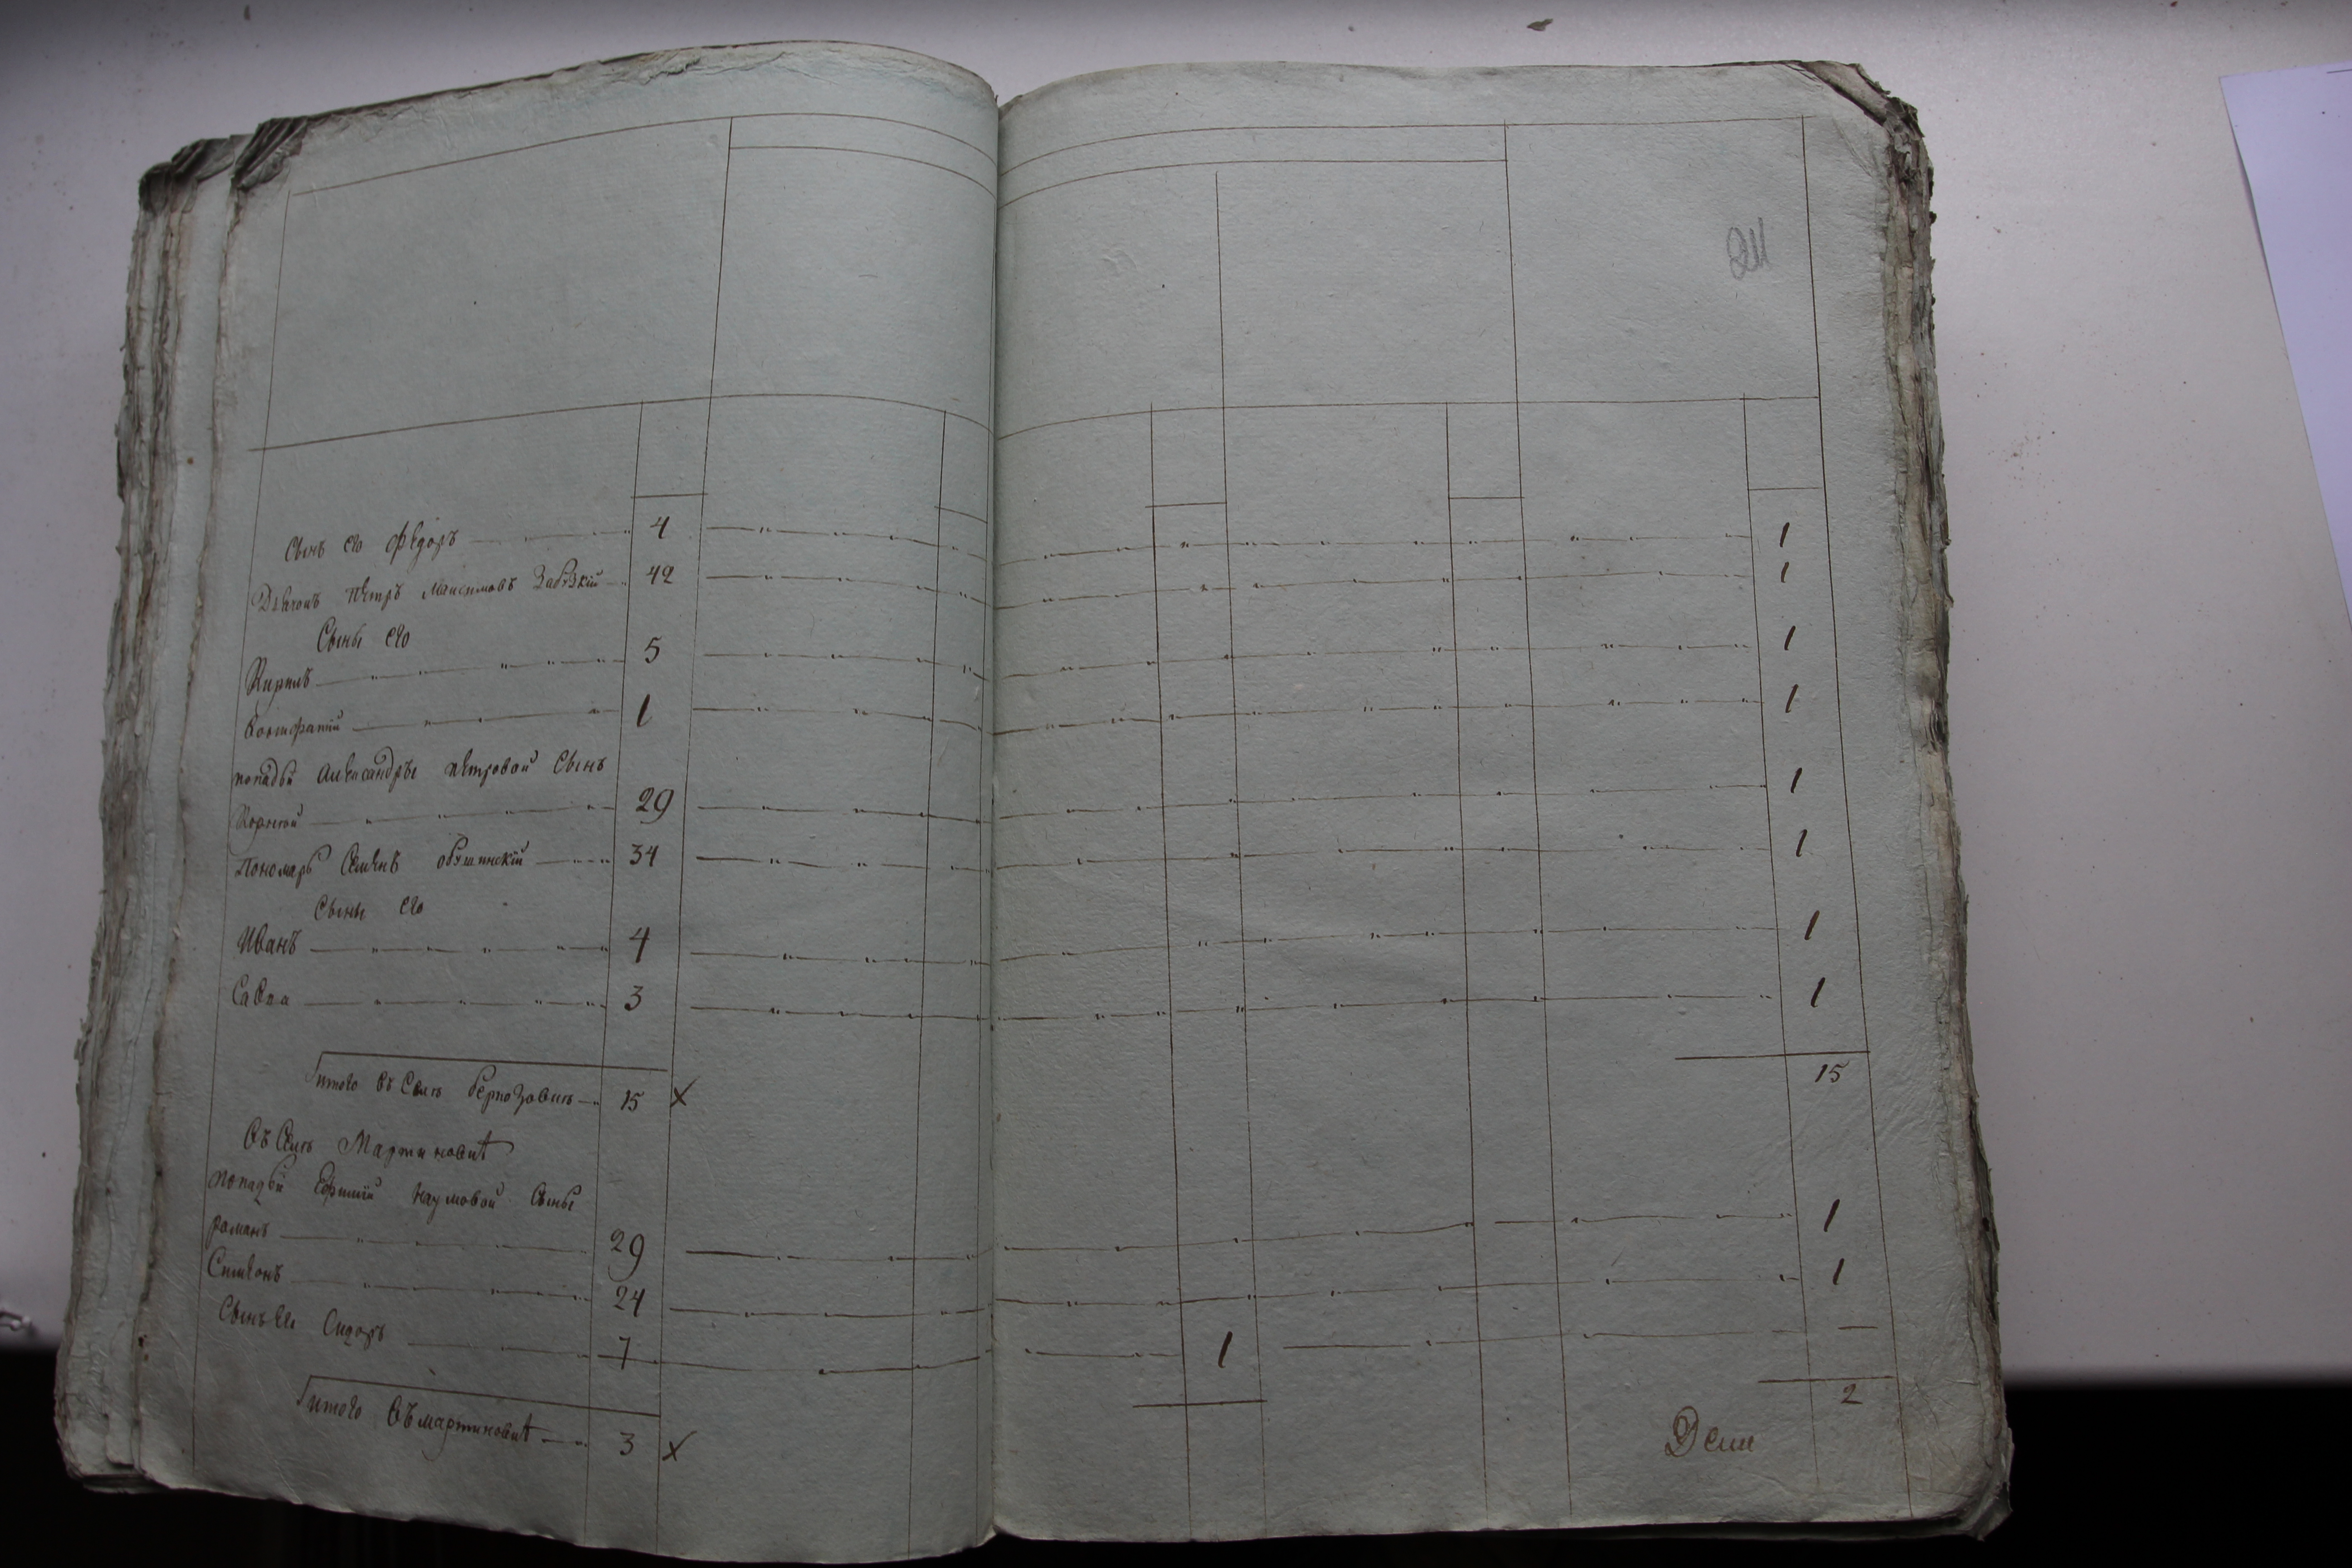 211
Сынъ его Федоръ 4 1
Дьячокъ Петръ Максимовъ 42 1
Сыны его
Кирилъ 5 1
1 1
попадьи Александры Петровой Сынъ
Корнѣй 29 1
Пономарь Семенъ 34 1
Сыны его
Иванъ 4 1
Савва 3 1
итого въ Селѣ 15 x 15
Въ Селѣ Мартиновкѣ
попадьи Наумовой Сыны
романъ 29 1
Симеонъ 24 1
Сынъ его Сидоръ 7 1 —
итого въ мартиновкѣ 3 x 2